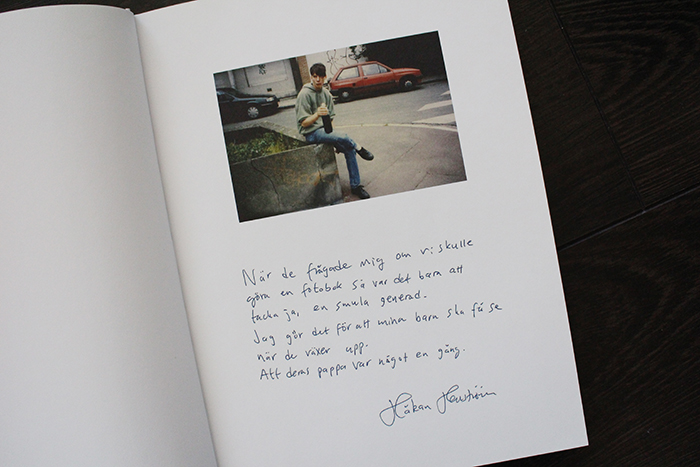 När de frågade mig om vi skulle
göra en fotobok så var det bara att
tacka ja, en smula generad.
Jag gör det för att mina barn ska få se
när de växer upp.
Att deras pappa var något en gång.
Håkan Hellström